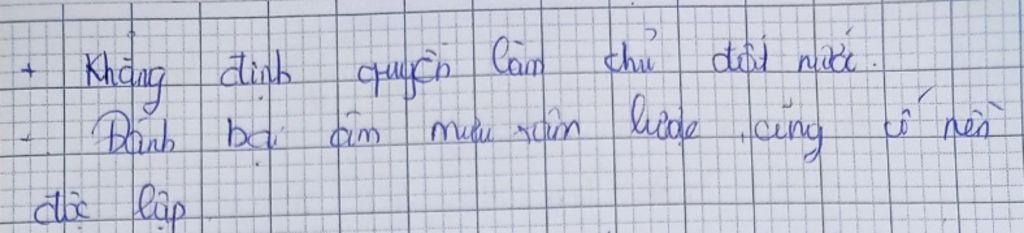 + Khẳng định quyền làm chủ đất nước.
- Đánh bại âm mưu xâm lược, củng cố nền
độc lập